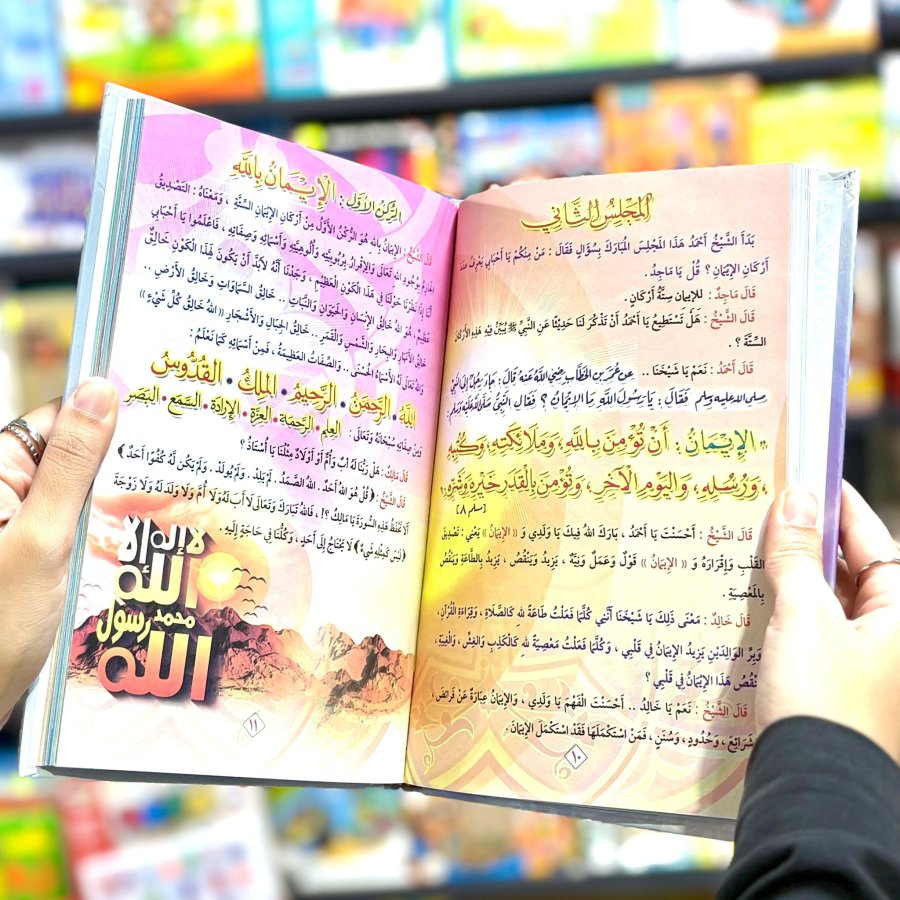 المجلس الثاني
بَدَأَ الشَّيْخُ أَحْمَدُ هَذَا المَجْلِسَ المُبَارَكَ بِسُؤَالٍ فَقَالَ : مَنْ مِنْكُمْ يَا أَحْبَابِي يَعْرِفُ
أَرْكَانَ الإِيْمَانِ ؟ قُلْ يَا مَاجِدُ .
قَالَ مَاجِدٌ : للإيمان سِتَّةُ أَرْكَانٍ .
قَالَ الشَّيْخُ : هَلْ تَسْتَطِيعُ يَا أَحْمَدُ أَنْ تَذْكُرَ لَنَا حَدِيْثًا عَنِ النَّبِيِّ ﷺ يُبَيِّنُ فِيْهِ هَذِهِ الأَرْكَانَ
السِّتَّةَ ؟ .
قَالَ أَحْمَدُ : نَعَمْ يَا شَيْخَنَا ..
عَنْ عُمَرَ بْنِ الخَطَّابِ رَضِيَ اللَّهُ عَنْهُ قَالَ : جَاءَ رَجُلٌ إِلَى النَّبِيِّ
صلى الله عليه وسلم فَقَالَ : يَا رَسُولَ اللَّهِ مَا الإِيْمَانُ ؟ فَقَالَ النَّبِيُّ صلى الله عليه وسلم :
« الإِيْمَانُ : أَنْ تُؤْمِنَ بِاللَّهِ ، وَمَلَائِكَتِهِ ، وَكُتُبِهِ
، وَرُسُلِهِ ، وَالْيَوْمِ الآخِرِ ، وَتُؤْمِنَ بِالْقَدَرِ خَيْرِهِ وَشَرِّهِ »
[مسلم ٨]
قَالَ الشَّيْخُ : أَحْسَنْتَ يَا أَحْمَدُ ، بَارَكَ اللهُ فِيكَ يَا وَلَدِي وَ « الإِيْمَانُ » يَعْنِي : تَصْدِيقَ
القَلْبِ وَإِقْرَارَهُ وَ « الإِيْمَانُ » قَوْلٌ وَعَمَلٌ وَنِيَّةٌ ، يَزِيدُ وَيَنْقُصُ ، يَزِيدُ بِالطَّاعَةِ وَيَنْقُصُ
بِالمَعْصِيَةِ .
قَالَ خَالِدٌ : مَعْنَى ذَلِكَ يَا شَيْخَنَا أَنَّنِي كُلَّمَا فَعَلْتُ طَاعَةً للهِ كَالصَّلَاةِ ، وَقِرَاءَةِ القُرْآنِ ،
وَبِرِّ الوَالِدَيْنِ يَزِيدُ الإِيْمَانُ فِي قَلْبِي ، وَكُلَّمَا فَعَلْتُ مَعْصِيَةً للهِ كَالْكَذِبِ وَالغِشِّ ، وَالْغِيبَةِ ،
نَقُصَ هَذَا الإِيْمَانُ فِي قَلْبِي ؟
قَالَ الشَّيْخُ : نَعَمْ يَا خَالِدُ .. أَحْسَنْتَ الْفَهْمَ يَا وَلَدِي ، وَالإِيْمَانُ عِبَارَةٌ عَنْ فَرَائِضَ ،
شَرَائِعَ ، وَحُدُودٍ ، وَسُنَنٍ ، فَمَنْ اسْتَكْمَلَهَا فَقَدْ اسْتَكْمَلَ الإِيْمَانَ .
١٠
الرُّكْنُ الأَوَّلُ : الإِيْمَانُ بِاللَّهِ
قَالَ الشَّيْخُ : الإِيْمَانُ بِاللهِ هُوَ الرُّكْنُ الأَوَّلُ مِنْ أَرْكَانِ الإِيْمَانِ السِّتَّةِ ، وَمَعْنَاهُ : التَّصْدِيقُ
بِوُجُودِ اللهِ تَعَالَى وَالإِقْرَارُ بِرُبُوبِيَّتِهِ وَأُلُوهِيَّتِهِ وَأَسْمَائِهِ وَصِفَاتِهِ ، فَاعْلَمُوا يَا أَحْبَابِي
أَنَّنَا إِذَا نَظَرْنَا حَوْلَنَا فِي هَذَا الكَوْنِ العَظِيمِ ، وَجَدْنَا أَنَّهُ لَابُدَّ أَنْ يَكُونَ لِهَذَا الْكَوْنِ خَالِقٌ
عَظِيمٌ ، هُوَ اللهُ خَالِقُ الإِنْسَانِ وَالْحَيَوَانِ وَالنَّبَاتِ .. خَالِقُ السَّمَاوَاتِ وَخَالِقُ الأَرْضِ ..
خَالِقُ الأَنْهَارِ وَالبِحَارِ وَالشَّمْسِ وَالْقَمَرِ .. خَالِقُ الجِبَالِ وَالأَشْجَارِ ﴿ اللهُ خَالِقُ كُلِّ شَيْءٍ ﴾
وَللهِ تَعَالَى لَهُ الأَسْمَاءُ الحُسْنَى .. وَالصِّفَاتُ العَظِيمَةُ ، فَمِنْ أَسْمَائِهِ كَمَا نَعْلَمُ :
اللهُ • الرَّحْمَنُ • الرَّحِيمُ • المَلِكُ • القُدُّوسُ
وَمِنْ صِفَاتِهِ سُبْحَانَهُ وَتَعَالَى : العِلْمُ • الرَّحْمَةُ • العِزَّةُ • الإِرَادَةُ • السَّمَعُ • البَصَرُ
قَالَ مَالِكٌ : هَلْ رَبُّنَا لَهُ أَبٌ وَأُمٌّ أَوْ أَوْلَادٌ مِثْلُنَا يَا أُسْتَاذُ ؟
قَالَ الشَّيْخُ : ﴿ قُلْ هُوَ اللهُ أَحَدٌ . اللهُ الصَّمَدُ . لَمْ يَلِدْ . وَلَمْ يُولَدْ . وَلَمْ يَكُن لَهُ كُفُوًا أَحَدٌ ﴾
أَلَا تَحْفَظُ هَذِهِ السُّورَةَ يَا مَالِكُ ؟! ، فَاللهُ تَبَارَكَ وَتَعَالَى لَا أَبَ لَهُ وَلَا أُمَّ وَلَا وَلَدَ لَهُ وَلَا زَوْجَةَ
﴿ لَيْسَ كَمِثْلِهِ شَيْءٌ ﴾ لَا يَحْتَاجُ إِلَى أَحَدٍ ، وَكُلُّنَا فِي حَاجَةٍ إِلَيْهِ .
لا إله إلا
الله
محمد رسول
الله
١١